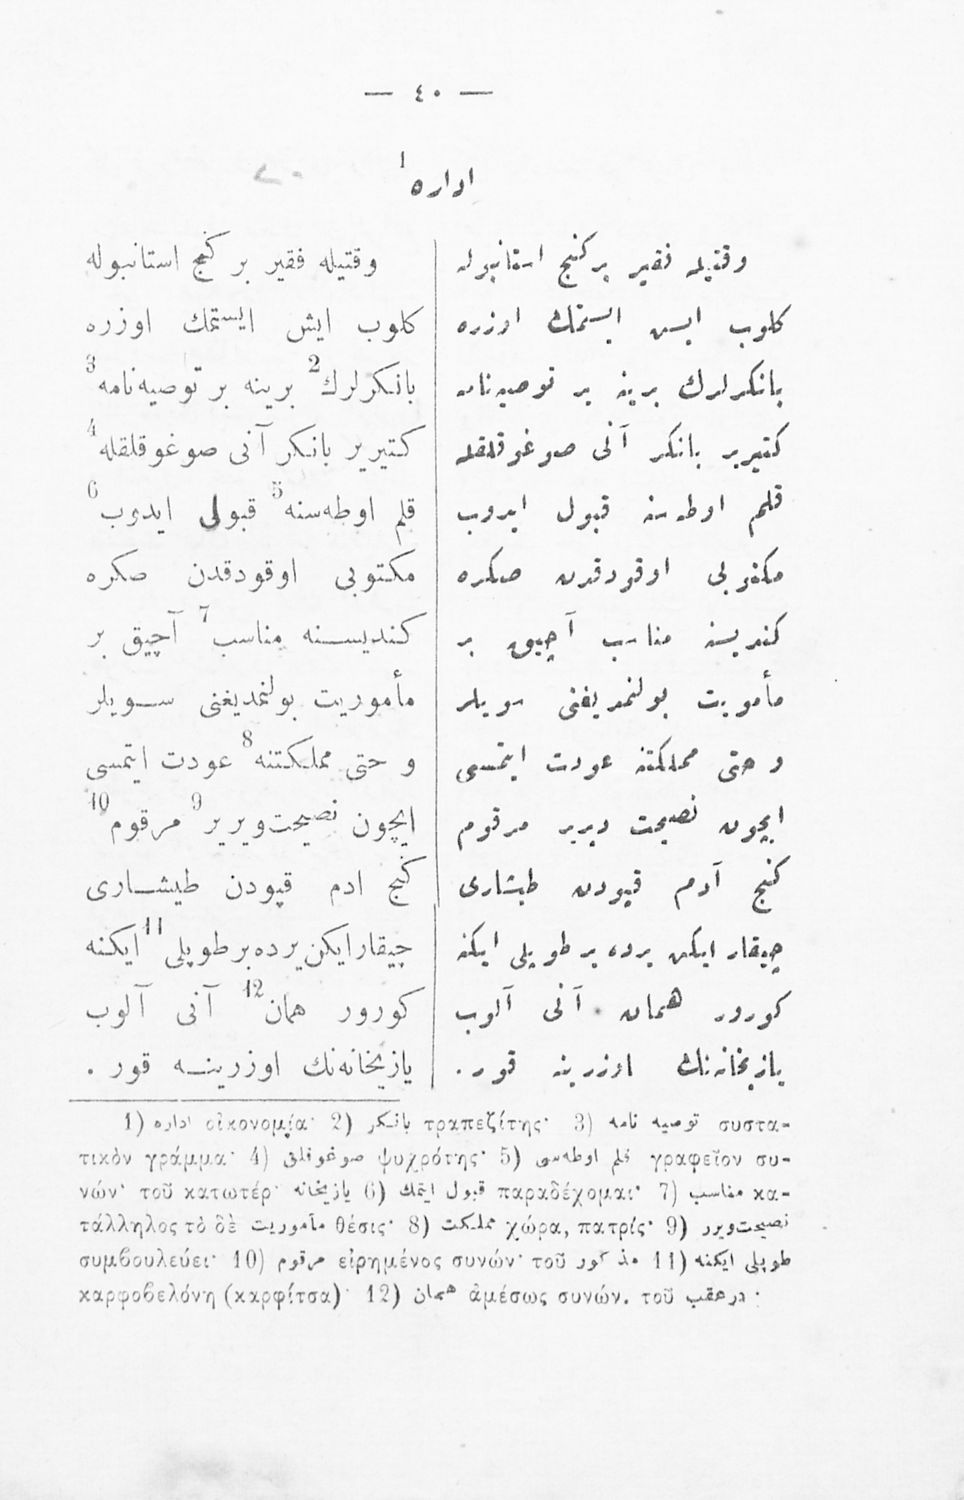 — ٤٠ —
اداره 1
وقتيله فقير بر كنج استانبوله
كلوب ايش ايستمك اوزره
بانكرلرك برينه بر توصيه‌نامه
كتيرير بانكر آنى صوغوقلقله
قلم اوطه‌سنه قبول ايدوب
مكتوبى اوقودقدن صكره
كنديسنه مناسب آچيق بر
مأموريت بولنمديغنى سويلر
و حتى مملكتنه عودت ايتمسى
ايچون نصيحت ويرير مرقوم
كنج آدم قپودن طيشارى
چيقار ايكن يرده بر طوپلى ايكنه
كورور همان آنى آلوب
يازيخانه‌نك اوزرينه قور .
وقتيله فقير بر كنج استانبوله
كلوب ايش ايستمك اوزره
بانكرلرك2 برينه بر توصيه‌نامه3
كتيرير بانكر آنى صوغوقلقله4
قلم اوطه‌سنه5 قبولى ايدوب6
مكتوبى اوقودقدن صكره
كنديسنه مناسب7 آچيق بر
مأموريت بولنمديغنى سويلر
و حتى مملكتنه8 عودت ايتمسى
ايچون نصيحت‌ويرير9 مرقوم10
كنج ادم قپودن طيشارى
چيقارايكن‌يرده‌برطوپلى11 ايكنه
كورور همان12 آنى آلوب
يازيخانه‌نك اوزرينه قور .
1) اداره οἰκονομία· 2) بانكر τραπεζίτης· 3) توصيه نامه συστα-
τικὸν γράμμα· 4) صوغوقلق ψυχρότης· 5) قلم اوطه‌سى γραφεῖον συ-
νών· τοῦ κατωτέρ· يازيخانه 6) قبول ايتمك παραδέχομαι· 7) مناسب κα-
τάλληλος τὸ δὲ مأموريت θέσις· 8) مملكت χώρα, πατρίς· 9) نصيحت‌ويرر
συμβουλεύει· 10) مرقوم εἰρημένος συνών· τοῦ مذكور 11) طوپلى ايكنه
καρφοβελόνη (καρφίτσα)· 12) همان ἀμέσως συνών. τοῦ درعقب ·